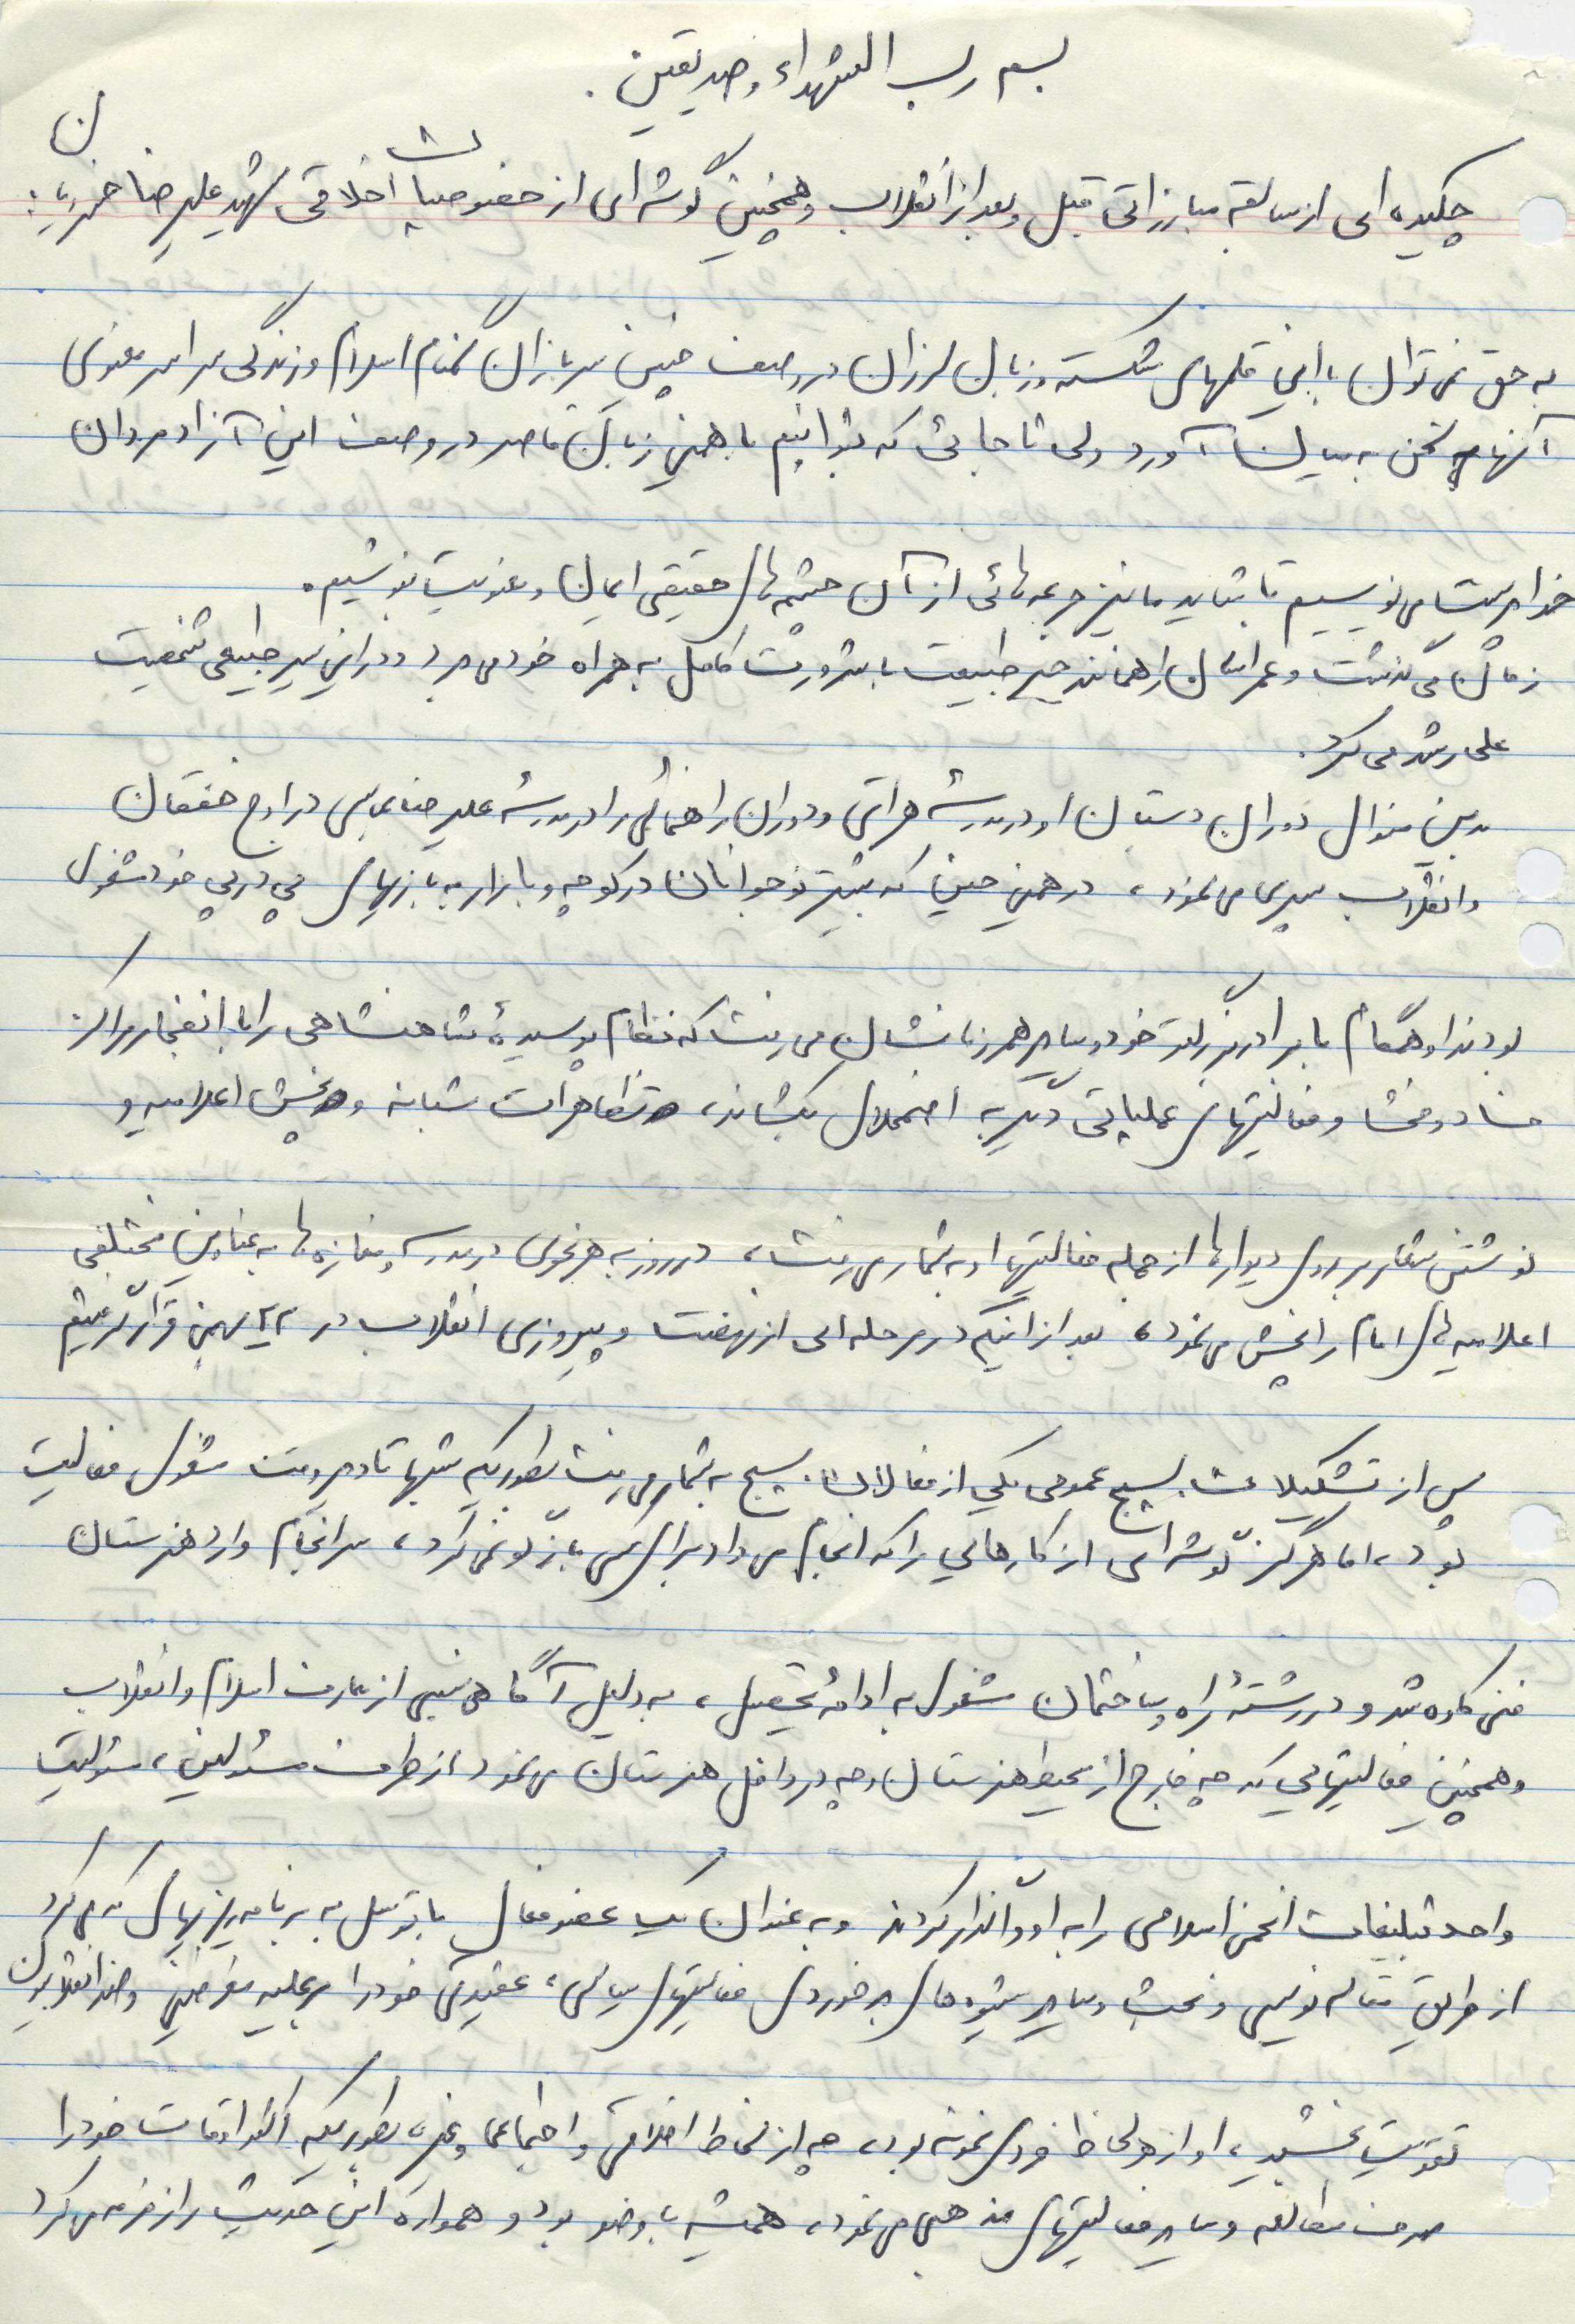 بسم رب الشهداء و صدیقین.
چکیده ای از سابقه مبارزاتی قبل و بعد از انقلاب و همچنین گوشه ای از خصوصیات اخلاقی شهید علیرضا
به حق نمی توان با این قلمهای شکسته و زبان لرزان در وصف چنین سربازان گمنام اسلام و زندگی سراسر معنوی
آنها سخن به میان آورد ولی تا جائی که بتوانیم با همین زبان قاصر در وصف این آزاد مردان
خداپرست می نویسیم تا شاید ما نیز جرعه هائی از آن چشمه های حقیقی ایمان و معنویت بنوشیم.
زمان می گذشت و عمر انسان را همانند طبیعت با سرورت کامل به همراه خود می برد و در این سیر طبیعی شخصیت
علی رشد می کرد.
بدین منوال دوران دبستان او در مدرسه هراتی و دوران راهنمائی را در مدرسه علیرضا عباسی در اوج خفقان
و انقلاب سپری می نمود، در همین حین که بیشتر نوجوانان در کوچه و بازار به بازیهای پی در پی خود مشغول
بودند او همگام با برادر بزرگتر خود و سایر همرزمانشان می رفت که نظام پوسیدهٔ شاهنشاهی را با انفجار مراکز
فساد و فحشا و فعالیتهای عملیاتی دیگر به اضمحلال بکشاند، تظاهرات شبانه و پخش اعلامیه و
نوشتن شعار بر روی دیوارها از جمله فعالیتها او به شمار می رفت، در روز به هر نحوی در مدرسه و مغازه ها به عناوین مختلفی
اعلامیه های امام را پخش می نمود، بعد از اینکه در مرحله ای از نهضت و پیروزی انقلاب در ۲۲ بهمن قرار گرفتیم
پس از تشکیلات بسیج عمومی یکی از فعالان بسیج به شمار می رفت بطوریکه شبها تا دیر وقت مشغول فعالیت
بود، اما هرگز گوشه ای از کارهایی را که انجام می داد برای کسی بازگو نمی کرد، سرانجام وارد هنرستان
فنی کاوه شد و در رشتهٔ راه و ساختمان مشغول به ادامهٔ تحصیل، به دلیل آگاهی نسبی از معارف اسلام و انقلاب
و همچنین فعالیتهایی که چه خارج از محیط هنرستان و چه در داخل هنرستان می نمود از طرف مسئولین، مسئولیت
واحد تبلیغات انجمن اسلامی را به او واگذار کردند و به عنوان یک عضو فعال با توسل به برنامه ریزیهای که می کرد
از طریق مقاله نویسی و بحث و سایر شیوه های برخوردی فعالیتهای سیاسی، عقیدتی خود را بر علیه مغرضین و ضد انقلابیون
تقویت بخشید، او از هر لحاظ فردی نمونه بود، چه از لحاظ اخلاقی و اجتماعی و غیره بطوریکه اکثر اوقات خود را
صرف مطالعه و سایر فعالیتهای مذهبی می نمود، همیشه با وضو بود و همواره این حدیث را زمزمه می کرد